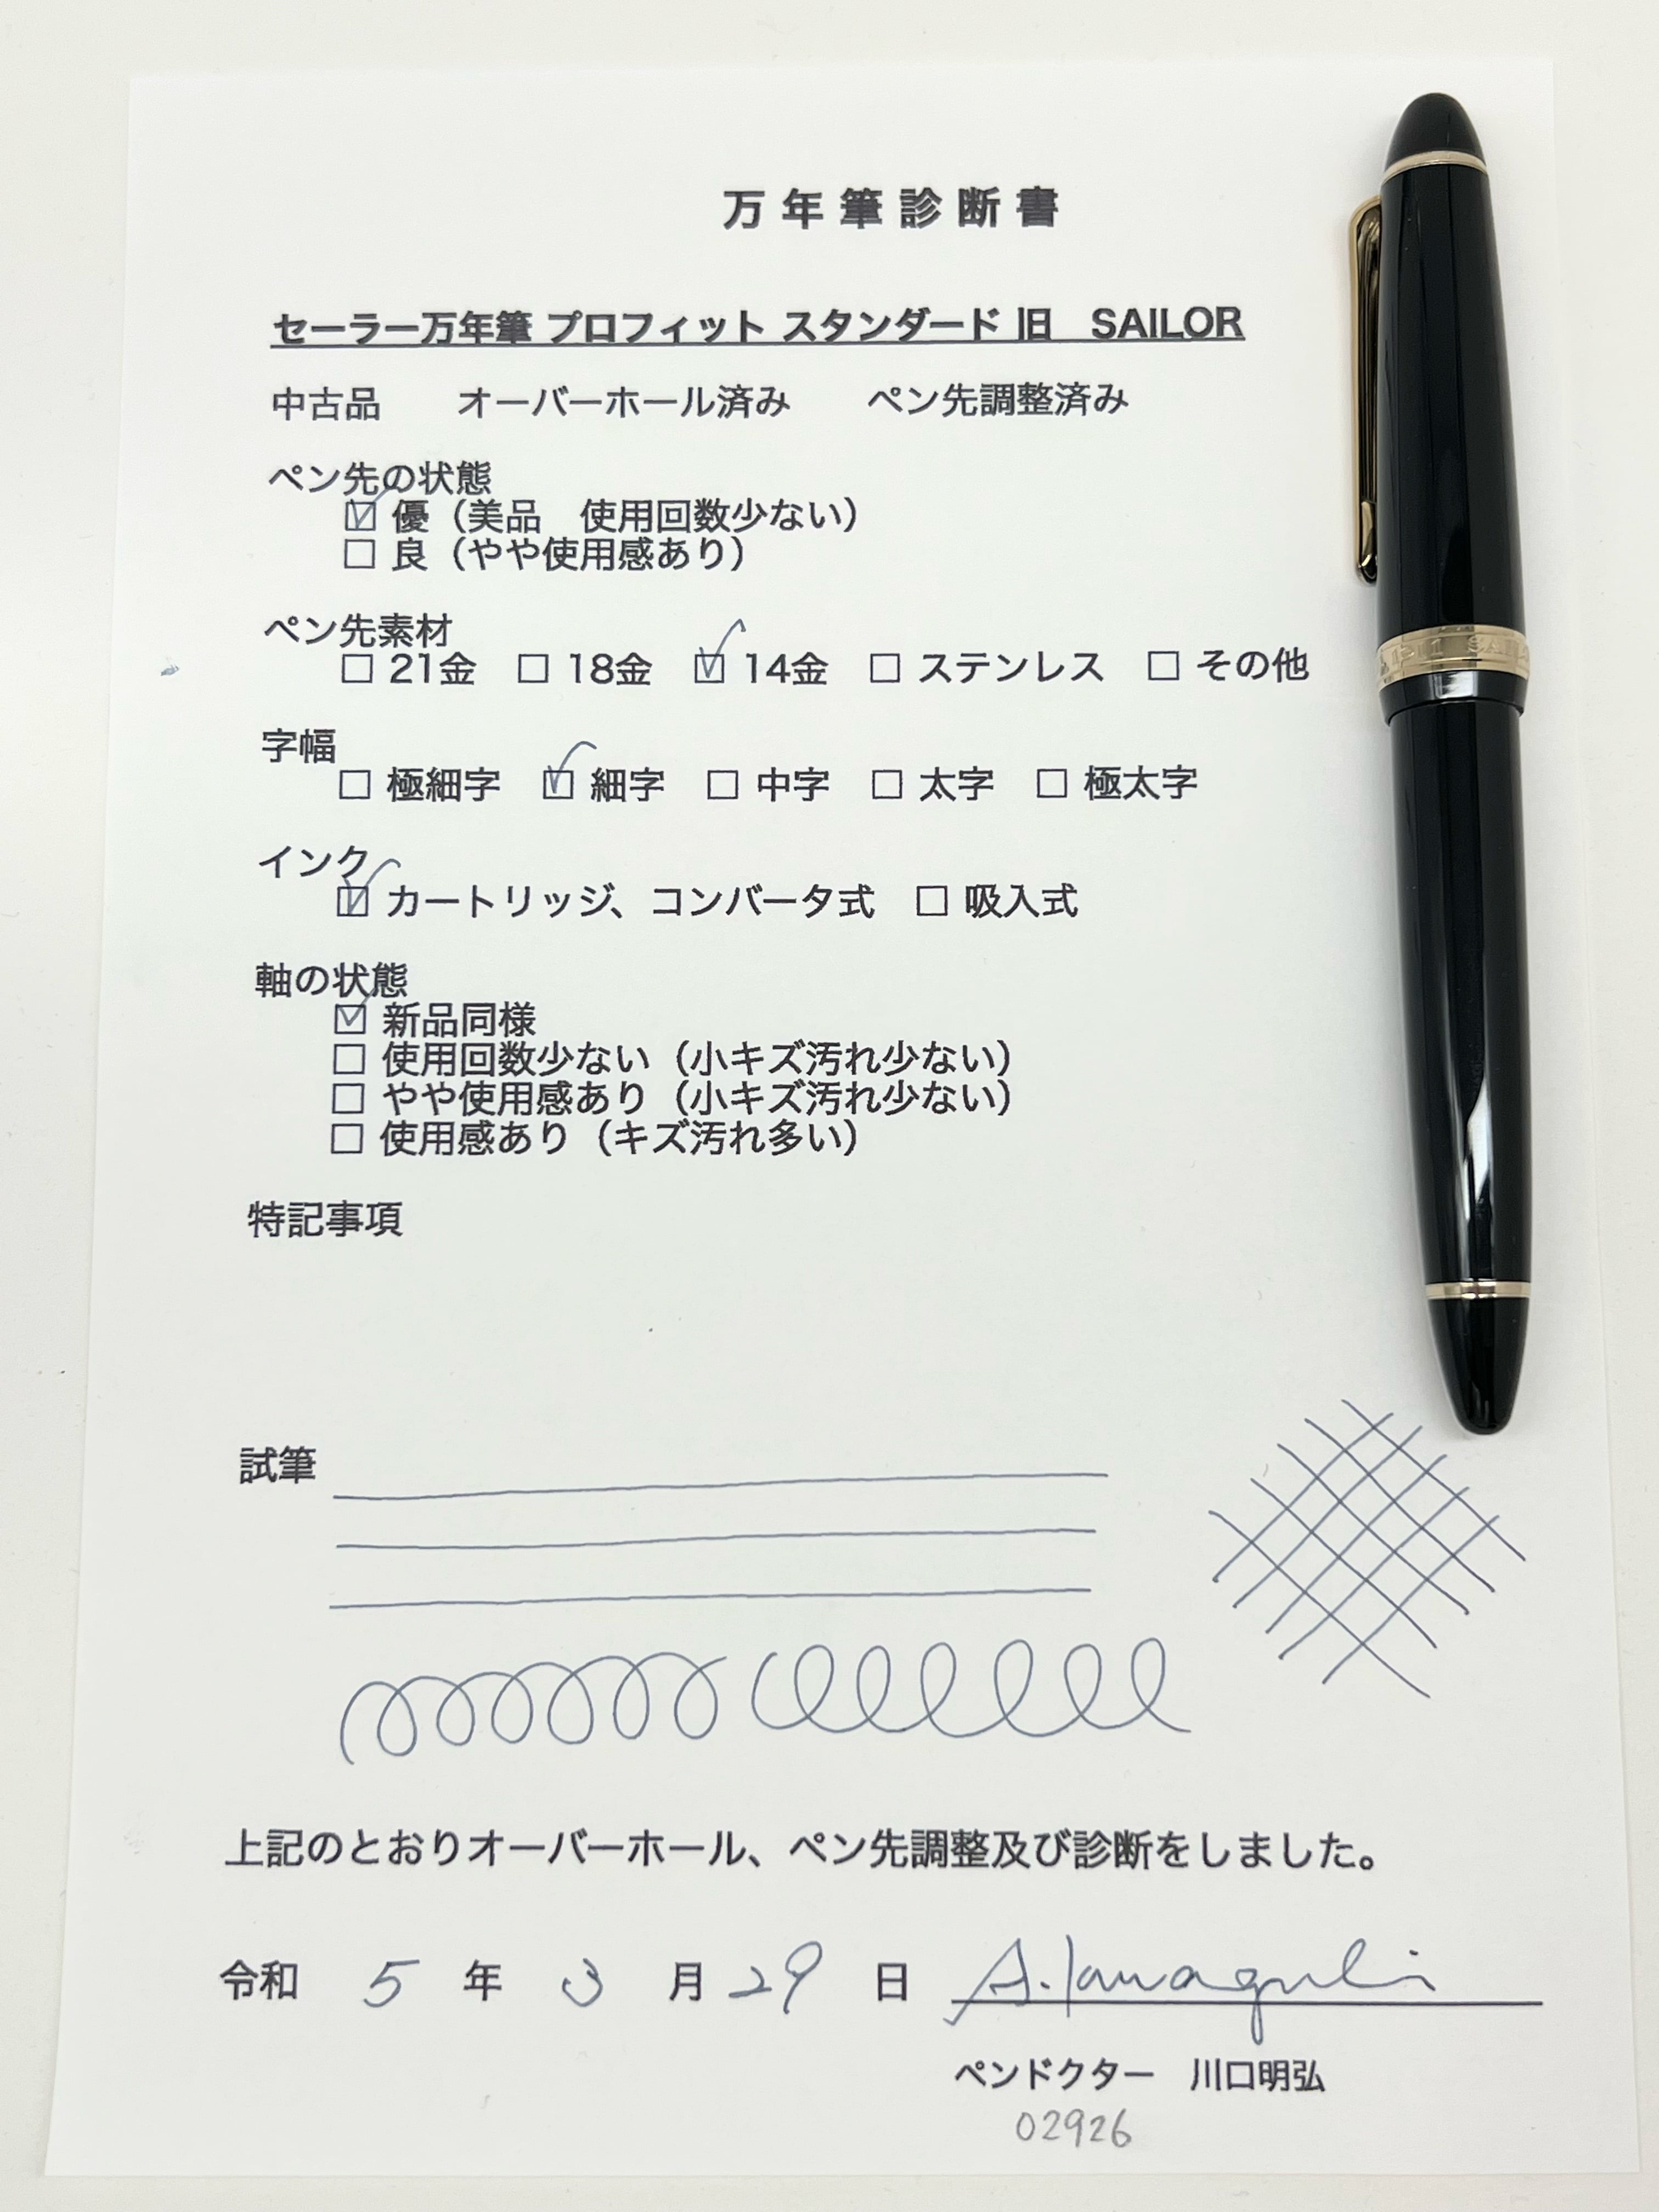 万年筆診断書
セーラー万年筆 プロフィット スタンダード 旧　SAILOR
中古品　　オーバーホール済み　　ペン先調整済み
ペン先の状態
☑ 優（美品　使用回数少ない）
☐ 良（やや使用感あり）
ペン先素材
☐ 21金　☐ 18金　☑ 14金　☐ ステンレス　☐ その他
字幅
☐ 極細字　☑ 細字　☐ 中字　☐ 太字　☐ 極太字
インク
☑ カートリッジ、コンバータ式　☐ 吸入式
軸の状態
☑ 新品同様
☐ 使用回数少ない（小キズ汚れ少ない）
☐ やや使用感あり（小キズ汚れ少ない）
☐ 使用感あり（キズ汚れ多い）
特記事項
試筆
上記のとおりオーバーホール、ペン先調整及び診断をしました。
令和　5　年　3　月　29　日　A. Kawaguchi
ペンドクター　川口明弘
02926